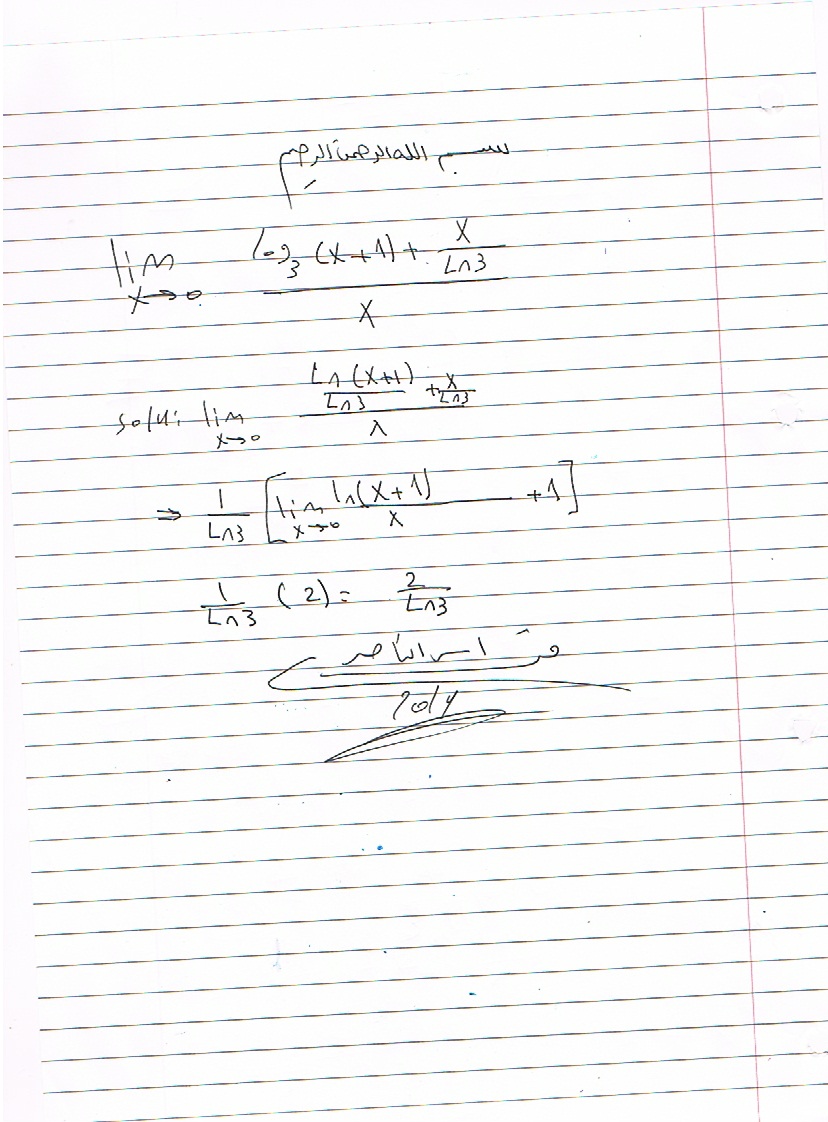 بسم الله الرحمن الرحيم
lim x→0 (log₃(x+1) + x/Ln3) / x
solu: lim x→0 (Ln(x+1)/Ln3 + x/Ln3) / x
⇒ 1/Ln3 [lim x→0 ln(x+1)/x + 1]
1/Ln3 (2) = 2/Ln3